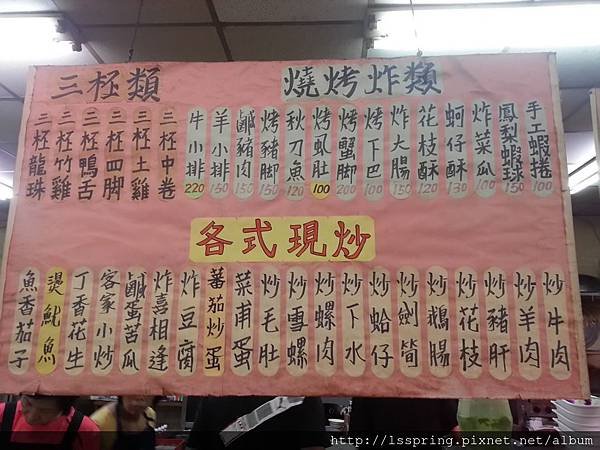 三柸類
燒烤炸類
三柸龍珠
三柸竹雞
三柸鴨舌
三柸四脚
三柸土雞
三柸中卷
牛小排 220
羊小排 150
鹹豬肉 150
烤豬脚 150
秋刀魚 120
烤虱肚 100
烤蟹脚 200
烤下巴 100
炸大腸 150
花枝酥 120
蚵仔酥 130
炸菜瓜 100
鳳梨蝦球 150
手工蝦捲 100
各式現炒
魚香茄子
燙魷魚
丁香花生
客家小炒
鹹蛋苦瓜
炸喜相逢
炸豆腐
蕃茄炒蛋
菜甫蛋
炒毛肚
炒雪螺
炒螺肉
炒下水
炒蛤仔
炒劍筍
炒鵝腸
炒花枝
炒豬肝
炒羊肉
炒牛肉
http://lsspring.pixnet.net/album